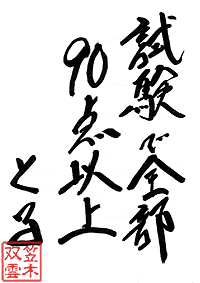 試験で全部
90点以上
とる
笠木
双雲